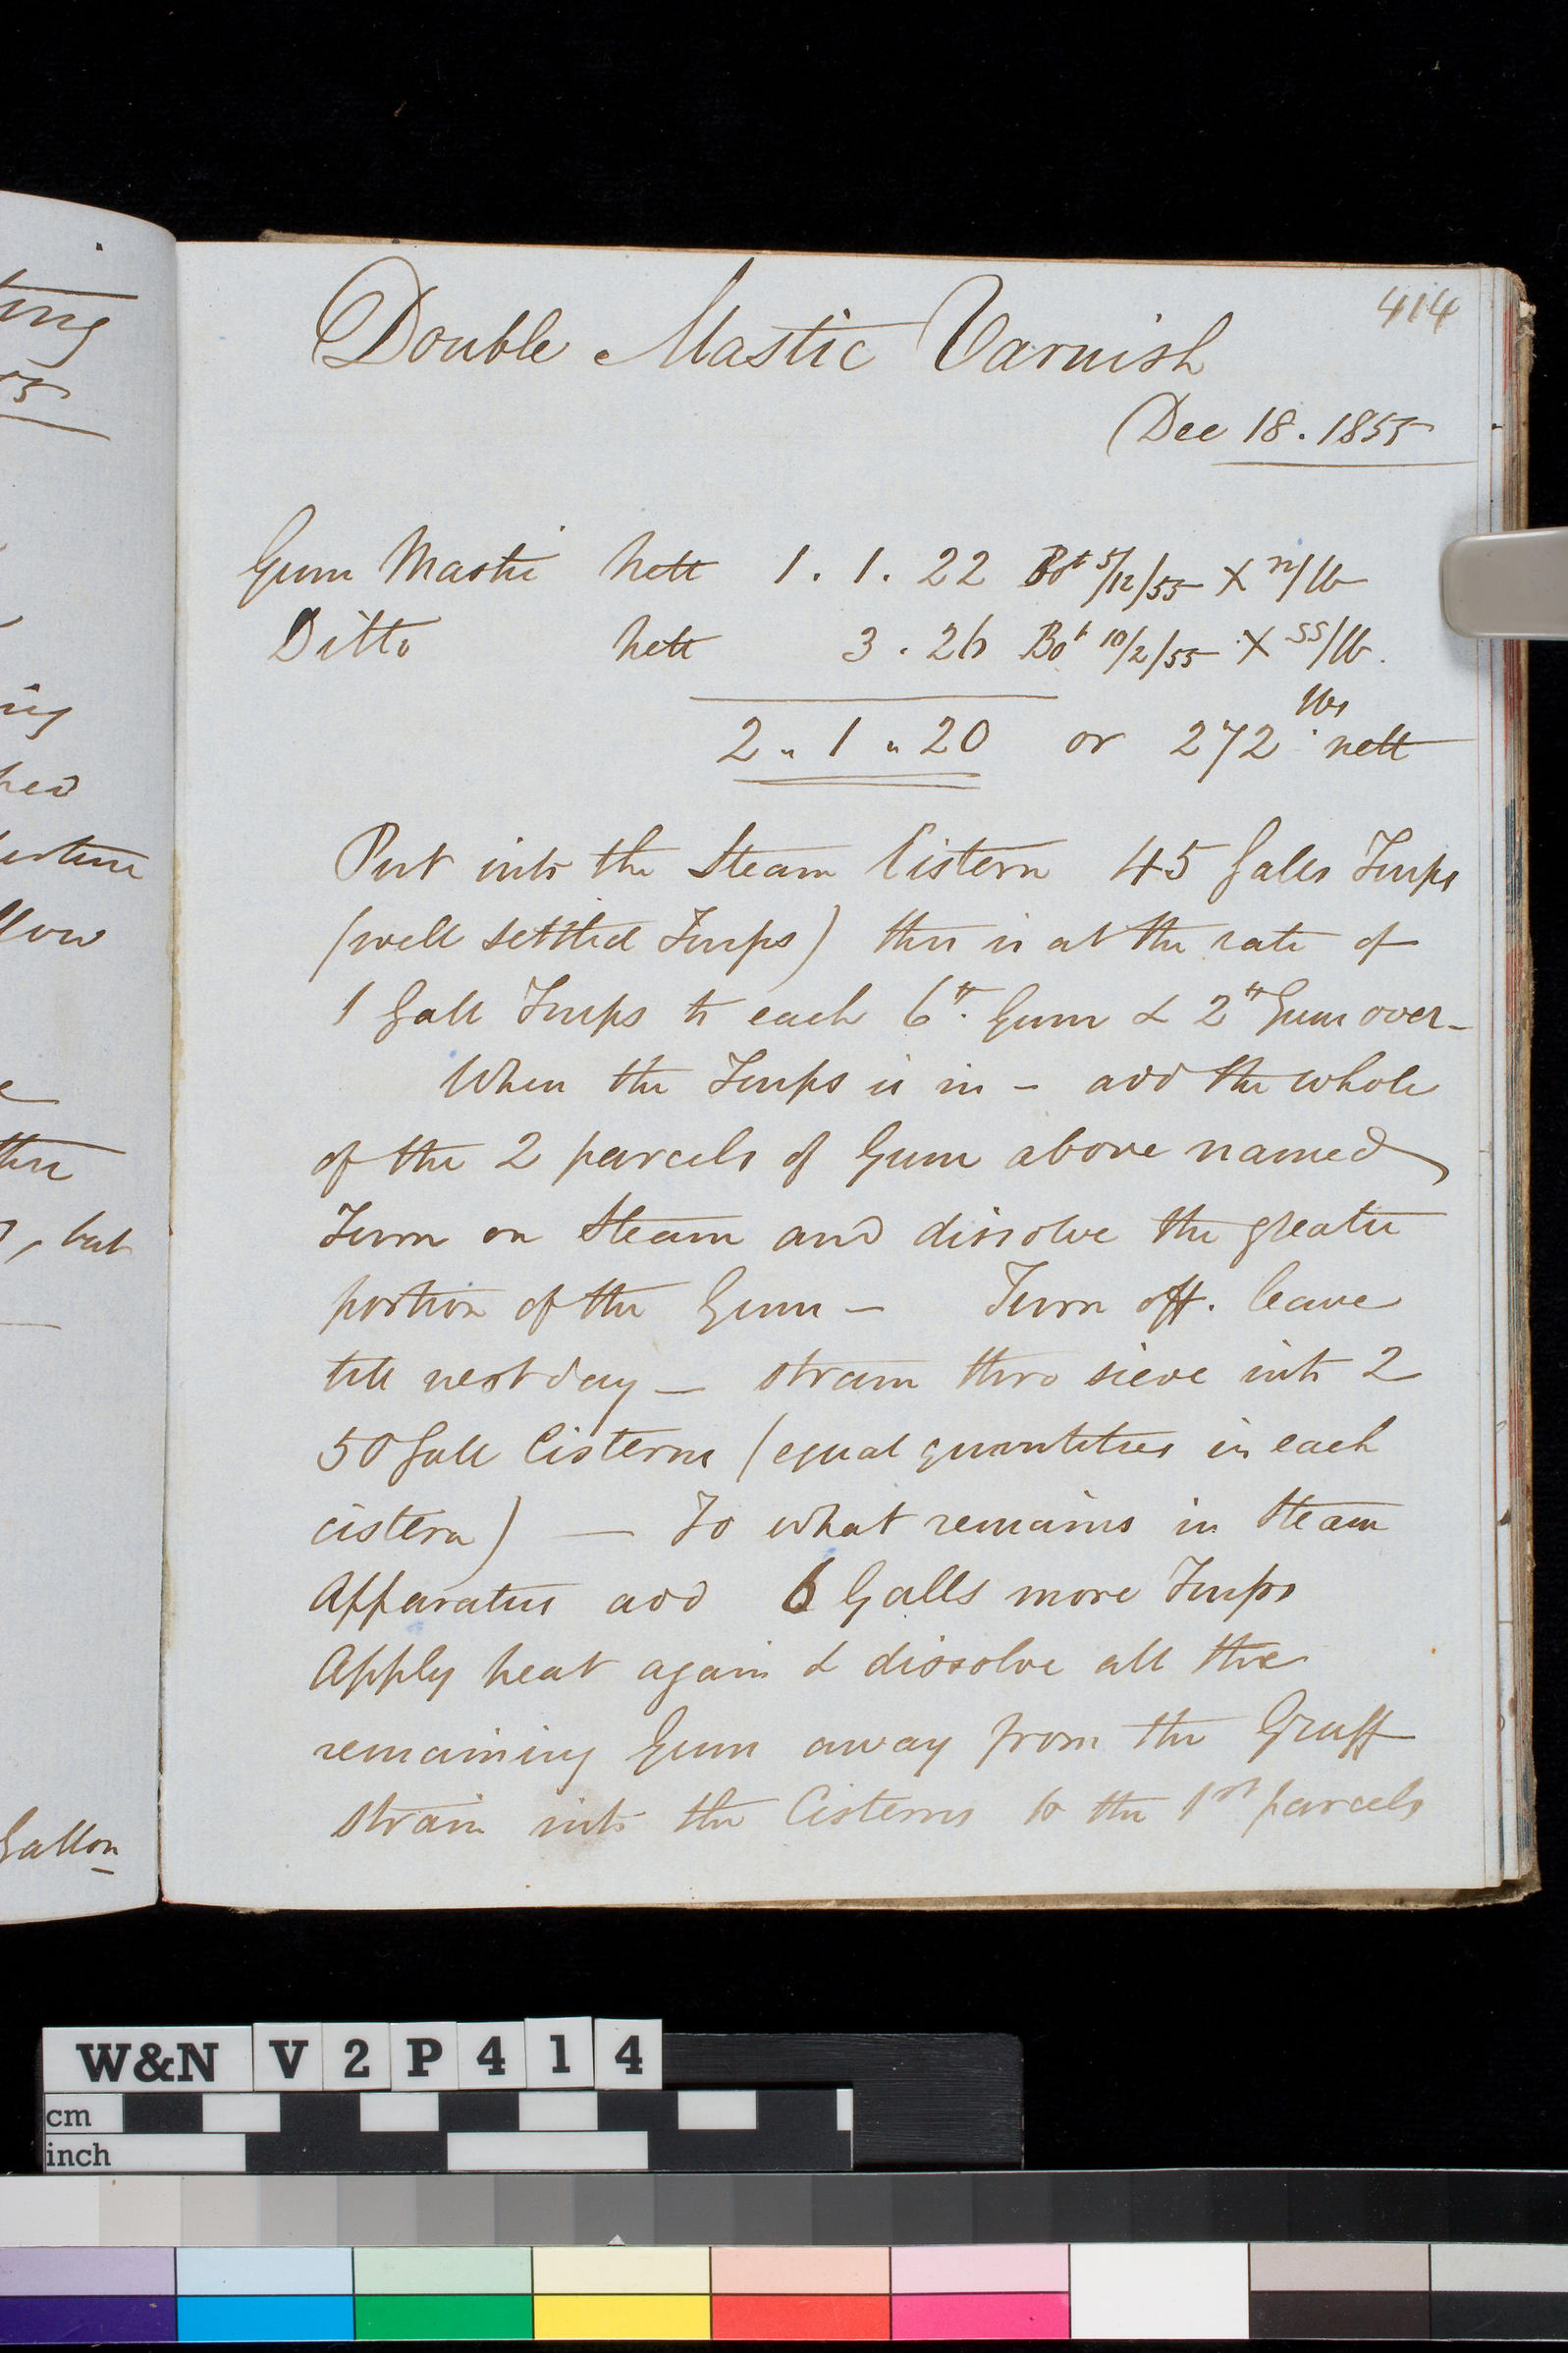 414
Double Mastic Varnish
Dec 18. 1855
Gum Mastic nett 1. 1. 22 Bot 5/12/55 X n/lb
Ditto nett 3. 26 Bot 10/2/55 X ss/lb.
2 " 1 " 20 or 272 lbs nett
Put into the Steam Cistern 45 Galls Turps
(well settled Turps) this is at the rate of
1 Gall Turps to each 6 lb. Gum & 2 lb Gum over_
When the Turps is in - add the whole
of the 2 parcels of Gum above named
Turn on Steam and dissolve the greater
portion of the Gum - Turn off. leave
till next day - strain thro sieve into 2
50 Gall Cisterns (equal quantities in each
cistern) - To what remains in Steam
Apparatus add 6 Galls more Turps
Apply heat again & dissolve all the
remaining Gum away from the Gruff
strain into the Cisterns to the 1st parcels
ting
ing
low
, but
Gallon
W&N V2P414
cm
inch